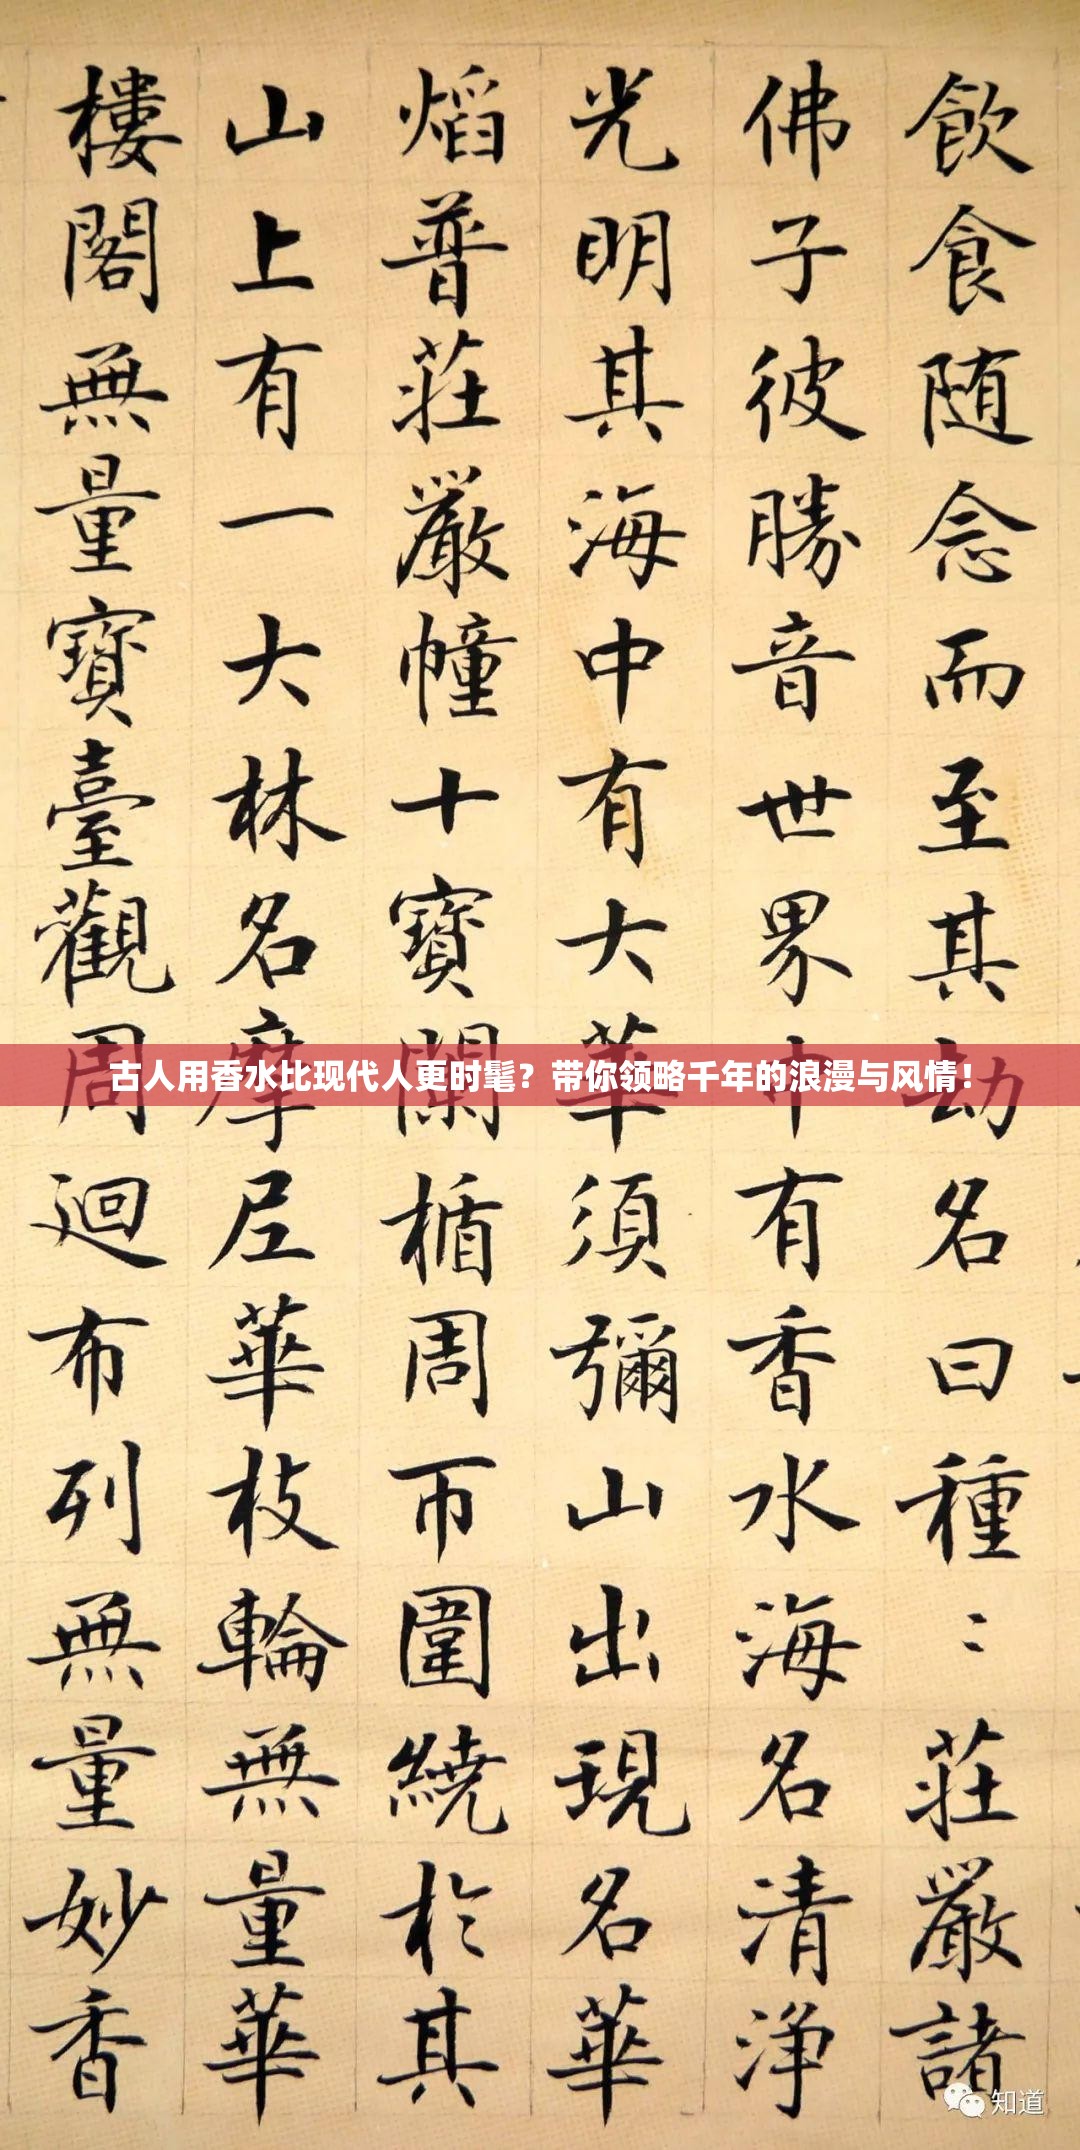 飲食随念而至其劫名曰種〻莊嚴諸
佛子彼勝音世界中有香水海名清淨
光明其海中有大華須彌山出現名華
焰普莊嚴幢十寶闌楯周帀圍繞於其
山上有一大林名摩尼華枝輪無量華
樓閣無量寶臺觀周迴布列無量妙香
古人用香水比现代人更时髦？带你领略千年的浪漫与风情！
知道